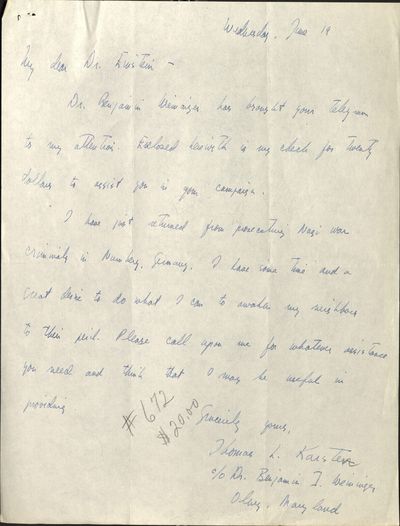 Wednesday, June 19
My dear Dr. Einstein –
Dr. Benjamin Weininger has brought your telegram
to my attention. Enclosed herewith is my check for twenty
dollars to assist you in your campaign.
I have just returned from prosecuting Nazi war
criminals in Nurnberg, Germany. I have some time and a
great desire to do what I can to awaken my neighbors
to their peril. Please call upon me for whatever assistance
you need and think that I may be useful in
providing
Sincerely yours,
#672
$20.00
Thomas L. Karsten
c/o Dr. Benjamin I. Weininger
Olney, Maryland